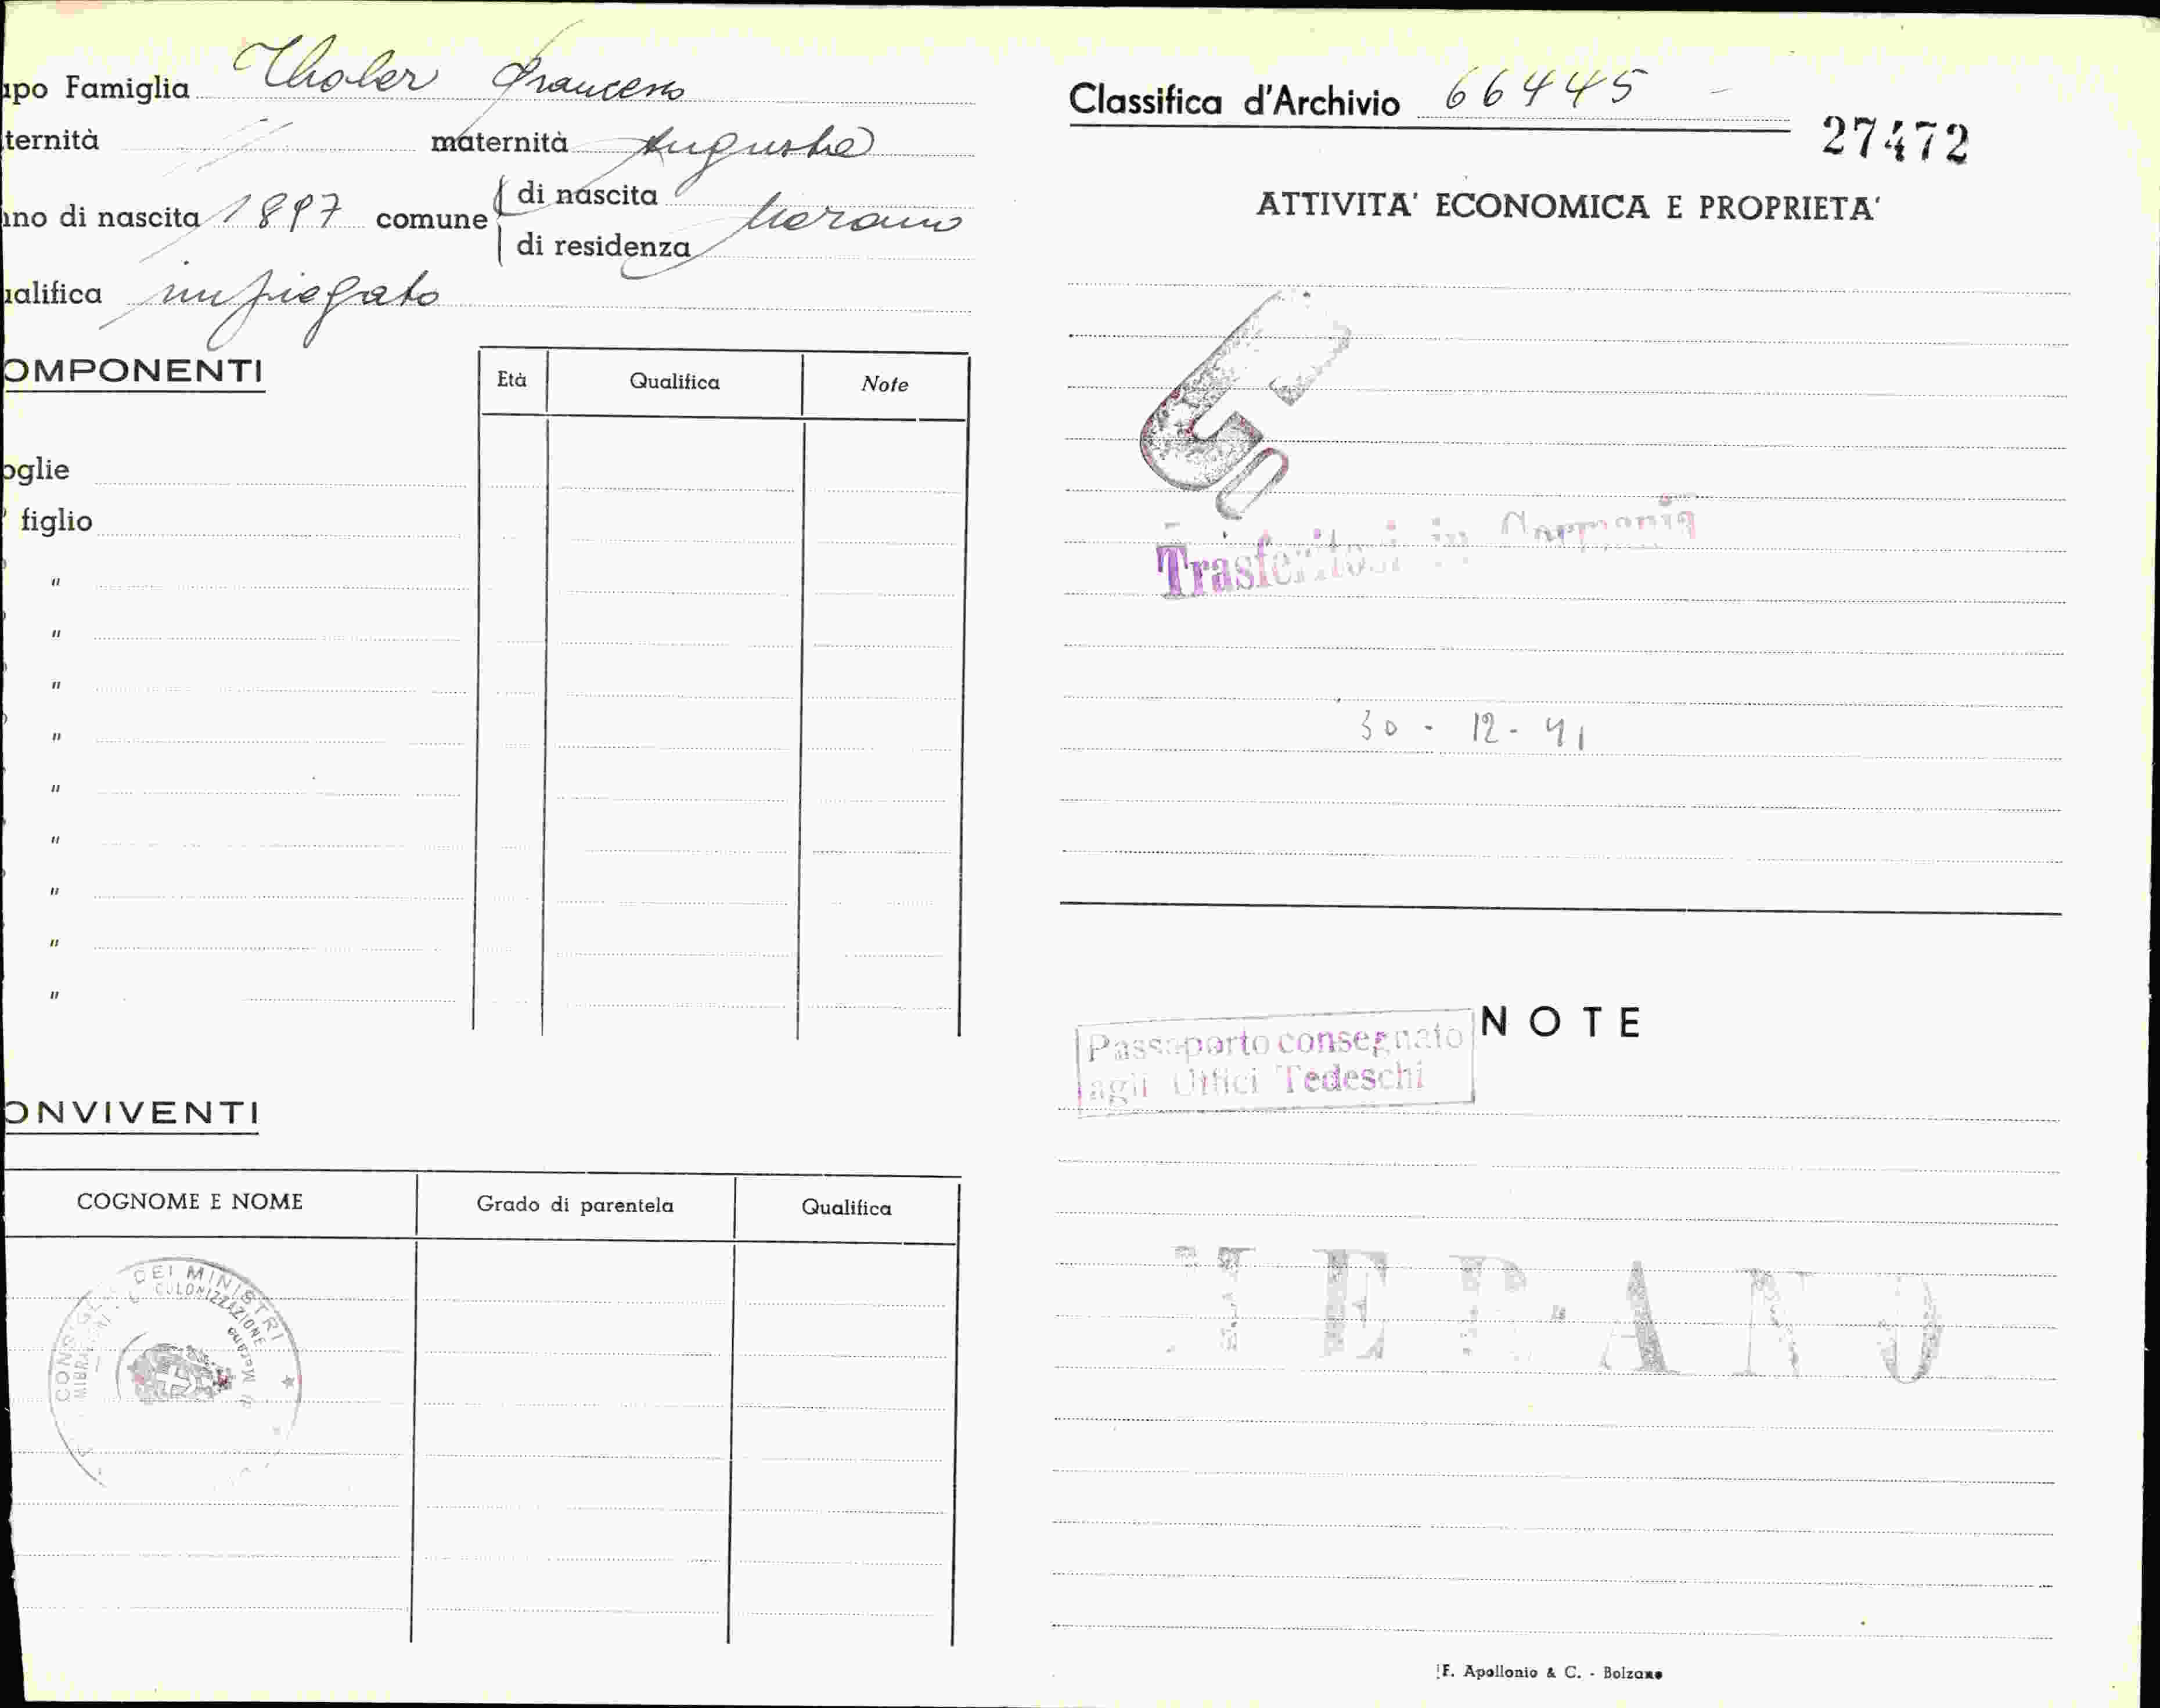 apo Famiglia Thaler Francesco
ternità // maternità Augusta
nno di nascita 1897 comune di nascita Merano
di residenza
ualifica impiegato
OMPONENTI
Età Qualifica Note
oglie
° figlio
"
"
"
"
"
"
"
"
"
ONVIVENTI
COGNOME E NOME Grado di parentela Qualifica
CONSIGLIO DEI MINISTRI
COLONIZZAZIONE
Merano
Classifica d'Archivio 66445 -
27472
ATTIVITA' ECONOMICA E PROPRIETA'
Trasferitosi in Germania
30 - 12 - 41
NOTE
Passaporto consegnato
agli Uffici Tedeschi
MERANO
F. Apollonio & C. - Bolzano